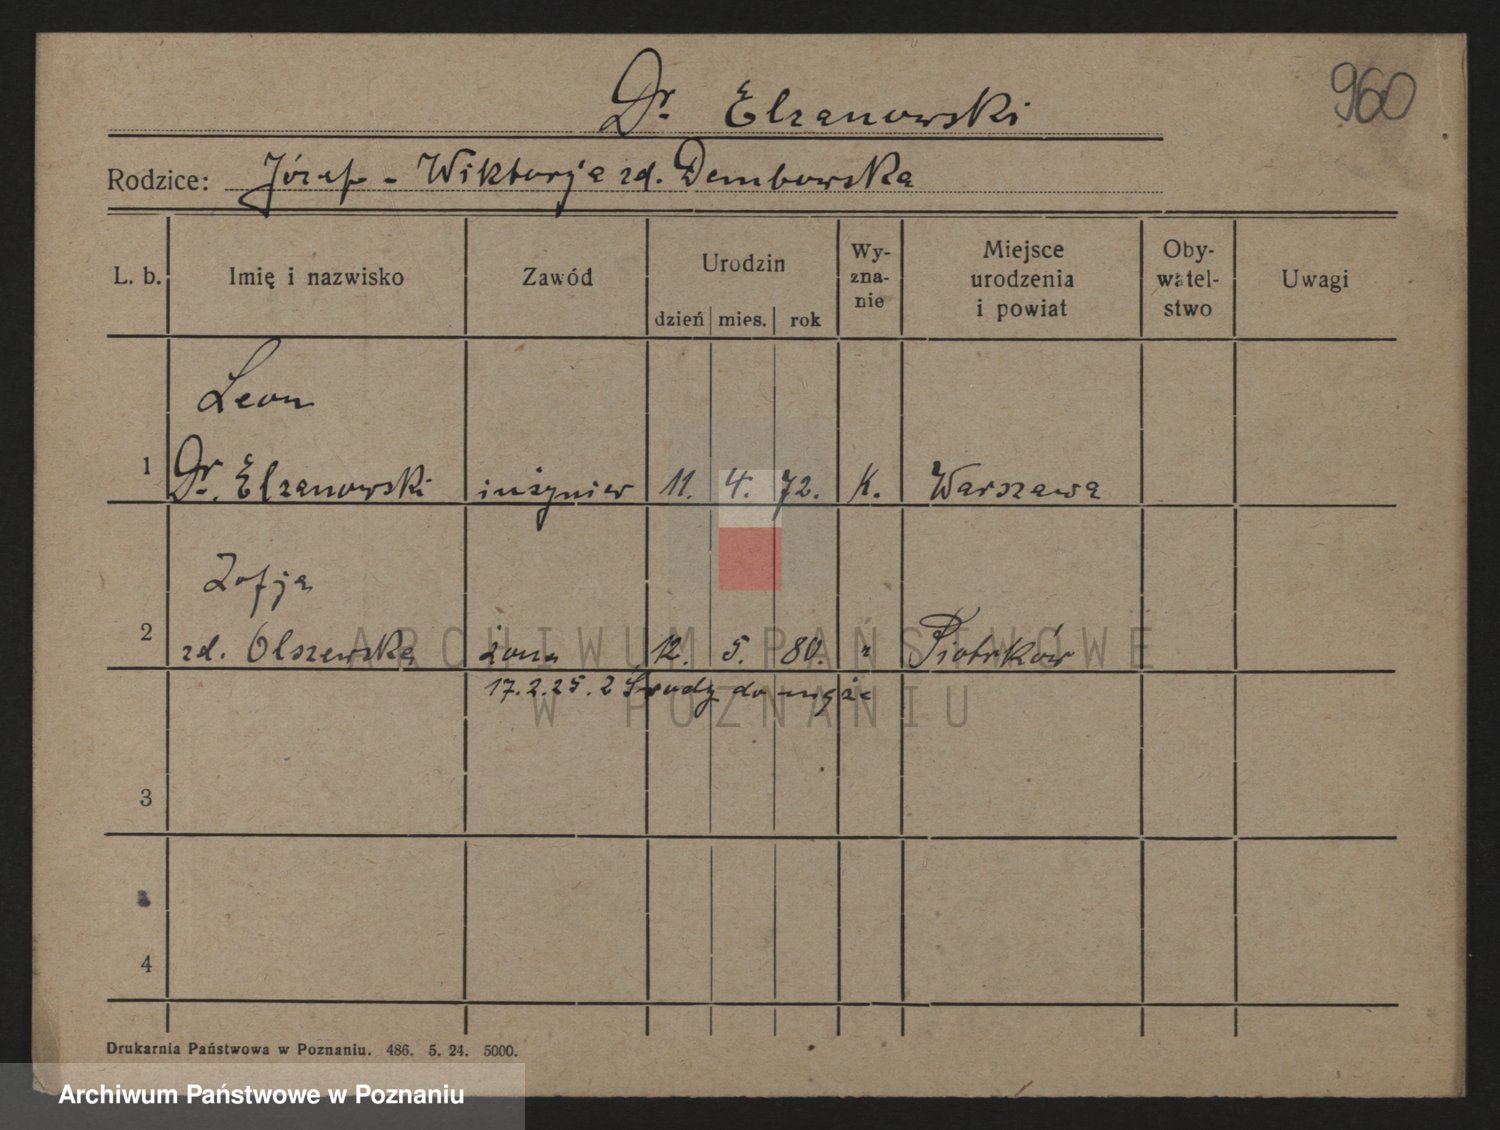 960
Dr. Elzanowski
Rodzice: Józef - Wiktorja zd. Dembowska
L. b. Imię i nazwisko Zawód Urodzin dzień mies. rok Wy-zna-nie Miejsce urodzenia i powiat Oby-watel-stwo Uwagi
Leon
1 Dr. Elzanowski inżynier 11. 4. 72. K. Warszawa
Zofja
2 zd. Olszewska żona 12. 5. 80. " Piotrków
17.2.25. z Środy do męża
3
4
Drukarnia Państwowa w Poznaniu. 486. 5. 24. 5000.
ARCHIWUM PAŃSTWOWE
W POZNANIU
Archiwum Państwowe w Poznaniu